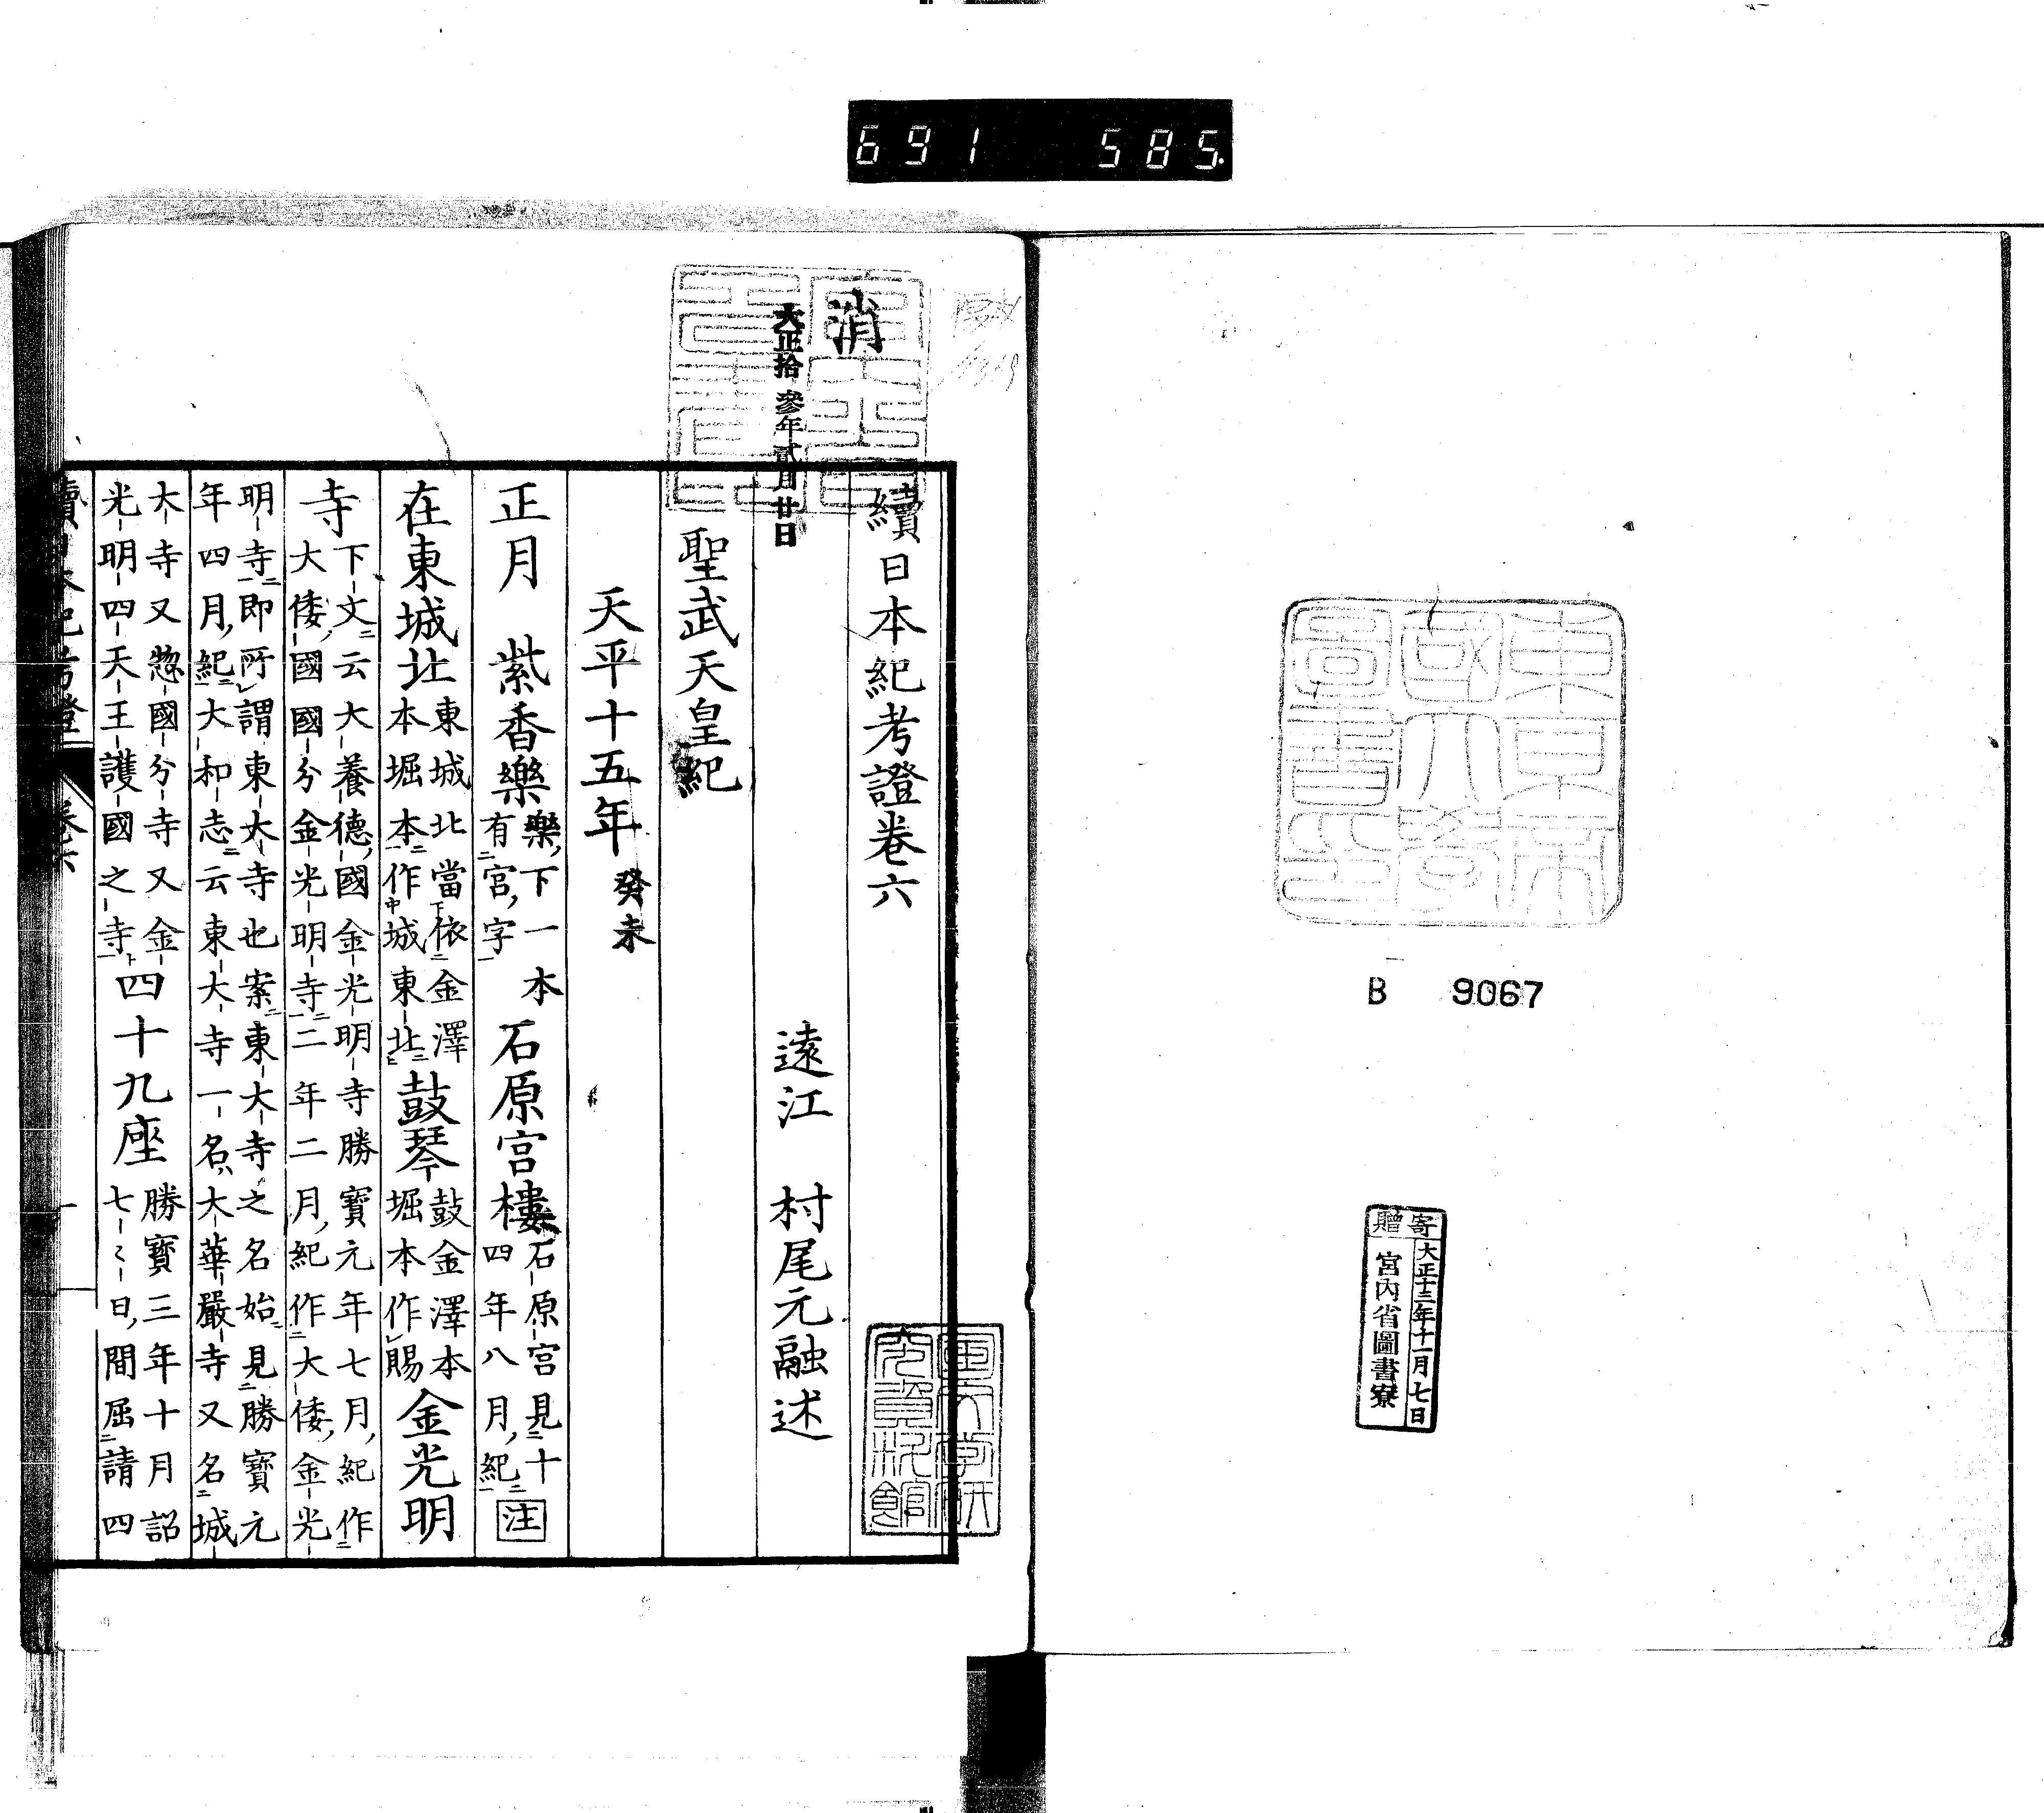 691 585.
東京帝
國大學
圖書印
B 9067
寄贈
大正十三年十一月七日
宮内省圖書寮
消
大正拾參年貳月廿日
續日本紀考證卷六
遠江 村尾元融述
聖武天皇紀
天平十五年 癸未
正月 紫香樂 樂下一本
有宮字 石原宮樓 石原宮見十
四年八月紀 注
在東城北 東城北當依金澤
本堀本作城東北 鼓琴 鼓金澤本
堀本作賜 金光明
寺 下文云大養德國金光明寺勝寶元年七月紀作
大倭國國分金光明寺二年二月紀作大倭金光
明寺即所謂東大寺也案東大寺之名始見勝寶元
年四月紀大和志云東大寺一名大華嚴寺又名城
大寺又惣國分寺又金
光明四天王護國之寺 四十九座 勝寶三年十月詔
七〻日間屈請四